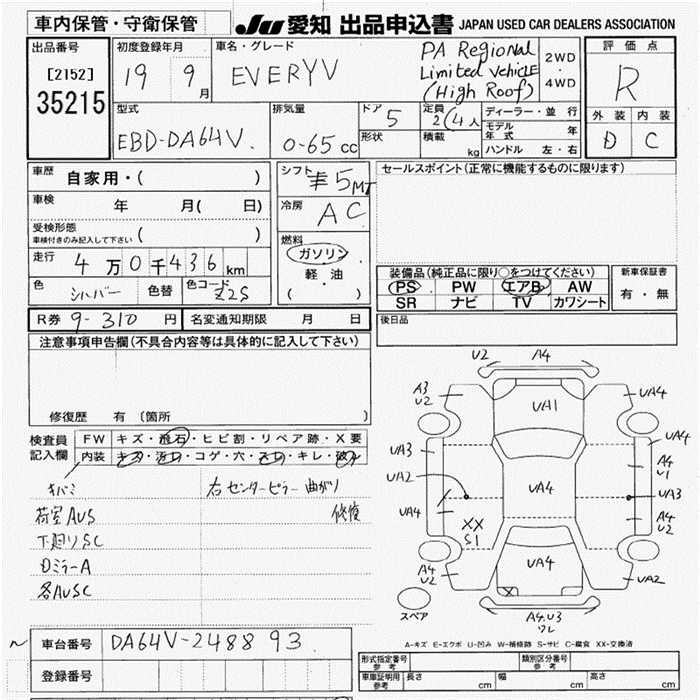 車内保管・守衛保管
JU 愛知 出品申込書 JAPAN USED CAR DEALERS ASSOCIATION
出品番号
[2152]
35215
初度登録年月
19年 9月
車名・グレード
EVERYV
PA Regional
Limited Vehicle
(High Roof)
2WD
・
4WD
評価点
R
外装 内装
D C
型式
EBD-DA64V.
排気量
0-65 cc
ドア 5
形状
定員
2(4人
積載
kg
ディーラー・並行
モデル年式 年
ハンドル 左・右
車歴 自家用・( )
車検 年 月( 日)
受検形態
車検付きのみ記入して下さい ( )
走行 4万0千436km
色 シルバー 色替 色コード Z2S
シフト 5MT
冷房 AC
燃料
ガソリン
・
軽・油
( )
セールスポイント(正常に機能するものに限ります)
装備品(純正品に限り○をつけてください)
PS PW エアB AW
SR ナビ TV カワシート
新車保証書
有・無
R券 9-310 円 名変通知期限 月 日
後日品
注意事項申告欄(不具合内容等は具体的に記入して下さい)
修復歴 有 〔箇所 〕
検査員
記入欄
FW キズ・飛石・ヒビ割・リペア跡・X要
内装 キズ・汚れ・コゲ・穴・スレ・キレ・破れ
キバミ
荷室AUS
下廻りSC
Dミラ-A
各AUSC
右センターピラー曲がり
修復
U2 A4
A3
U2
UA1
UA4
UA3
UA4
UA2
A4
U1
UA4
UA3
UA4
XX
S1
A4
U2
A4
U2
UA4
X
UA2
A4.U3
ワレ
スペア
A-キズ E-エクボ U-凹み W-補修跡 S-サビ C-腐食 XX-交換済
車台番号 DA64V-248893
登録番号
形式指定番号
参考
類別区分番号
参考
車庫証明用
参考
長さ cm 幅 cm 高さ cm